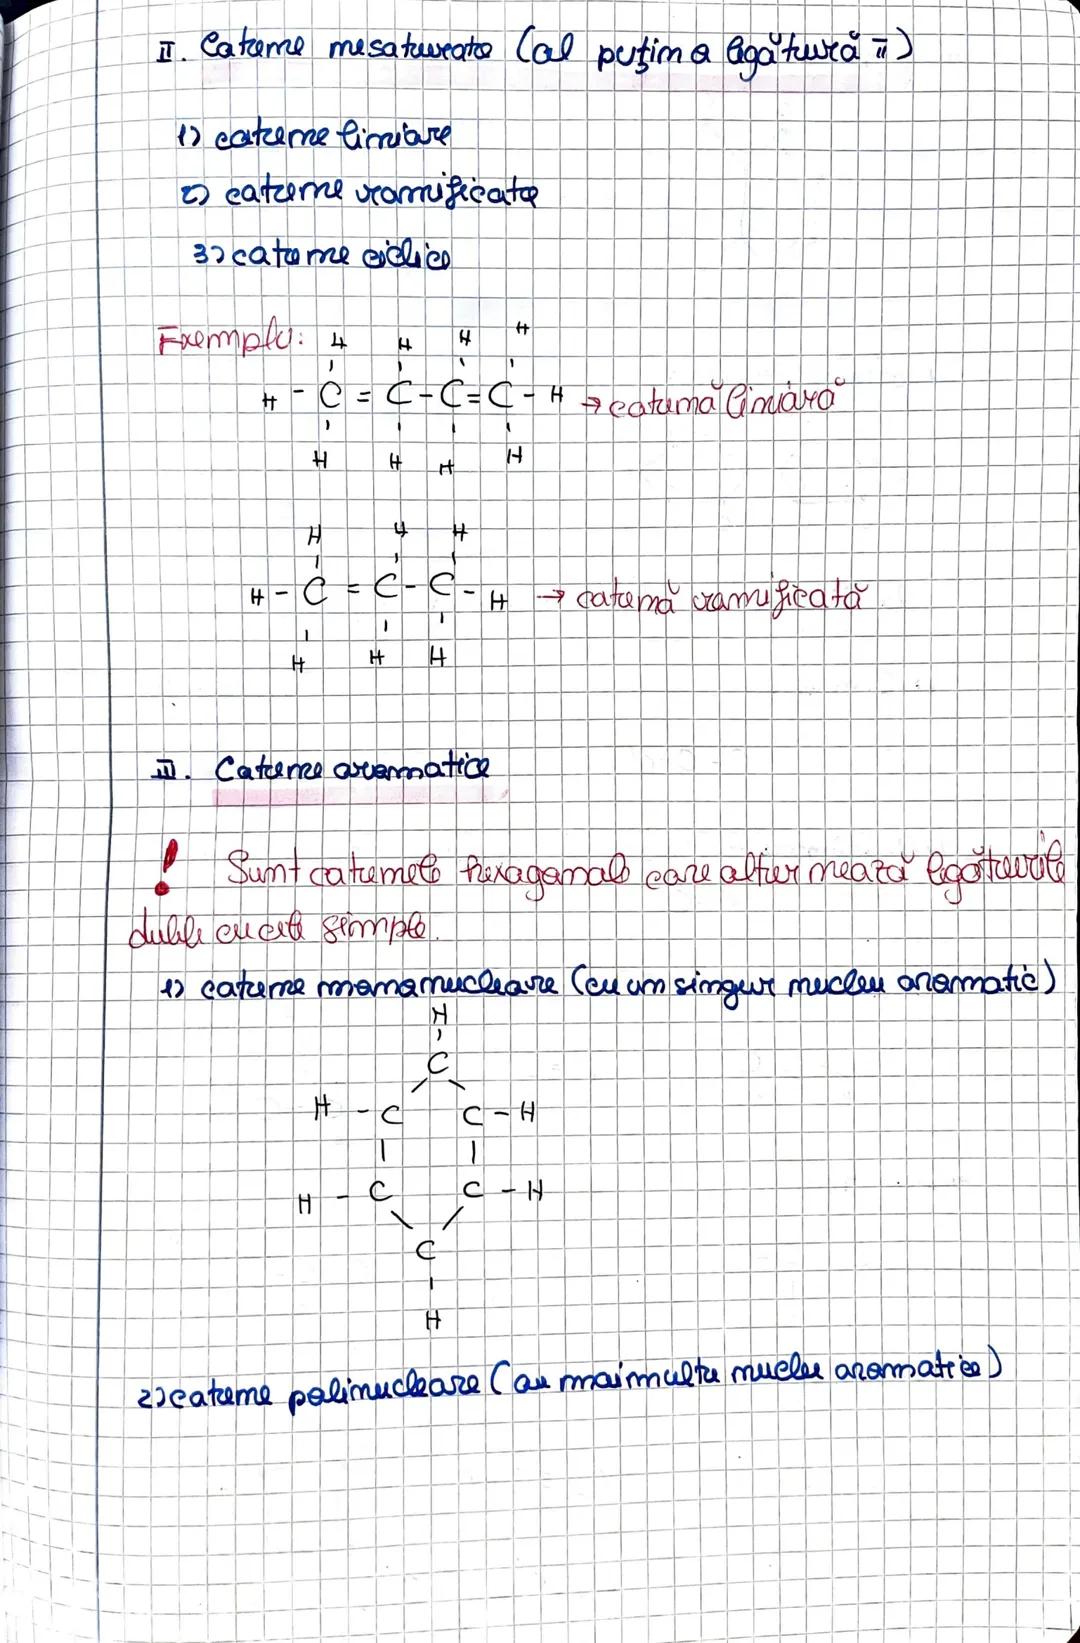 II. Catene nesaturate (cel puțin o legătură π)
1) catene liniare
2) catene ramificate
3) catene ciclice
Exemplu:
H H H H
H - C = C - C = C - H → catenă liniară
H H H H
H H H
H - C = C - C - H → catenă ramificată
H H H
III. Catene aromatice
! Sunt catenele hexagonale care alternează legăturile
duble cu cele simple.
1) catene mononucleare (cu un singur nucleu aromatic)
H
C
H - C C - H
H - C C - H
C
H
2) catene polinucleare (au mai multe nuclee aromatice)